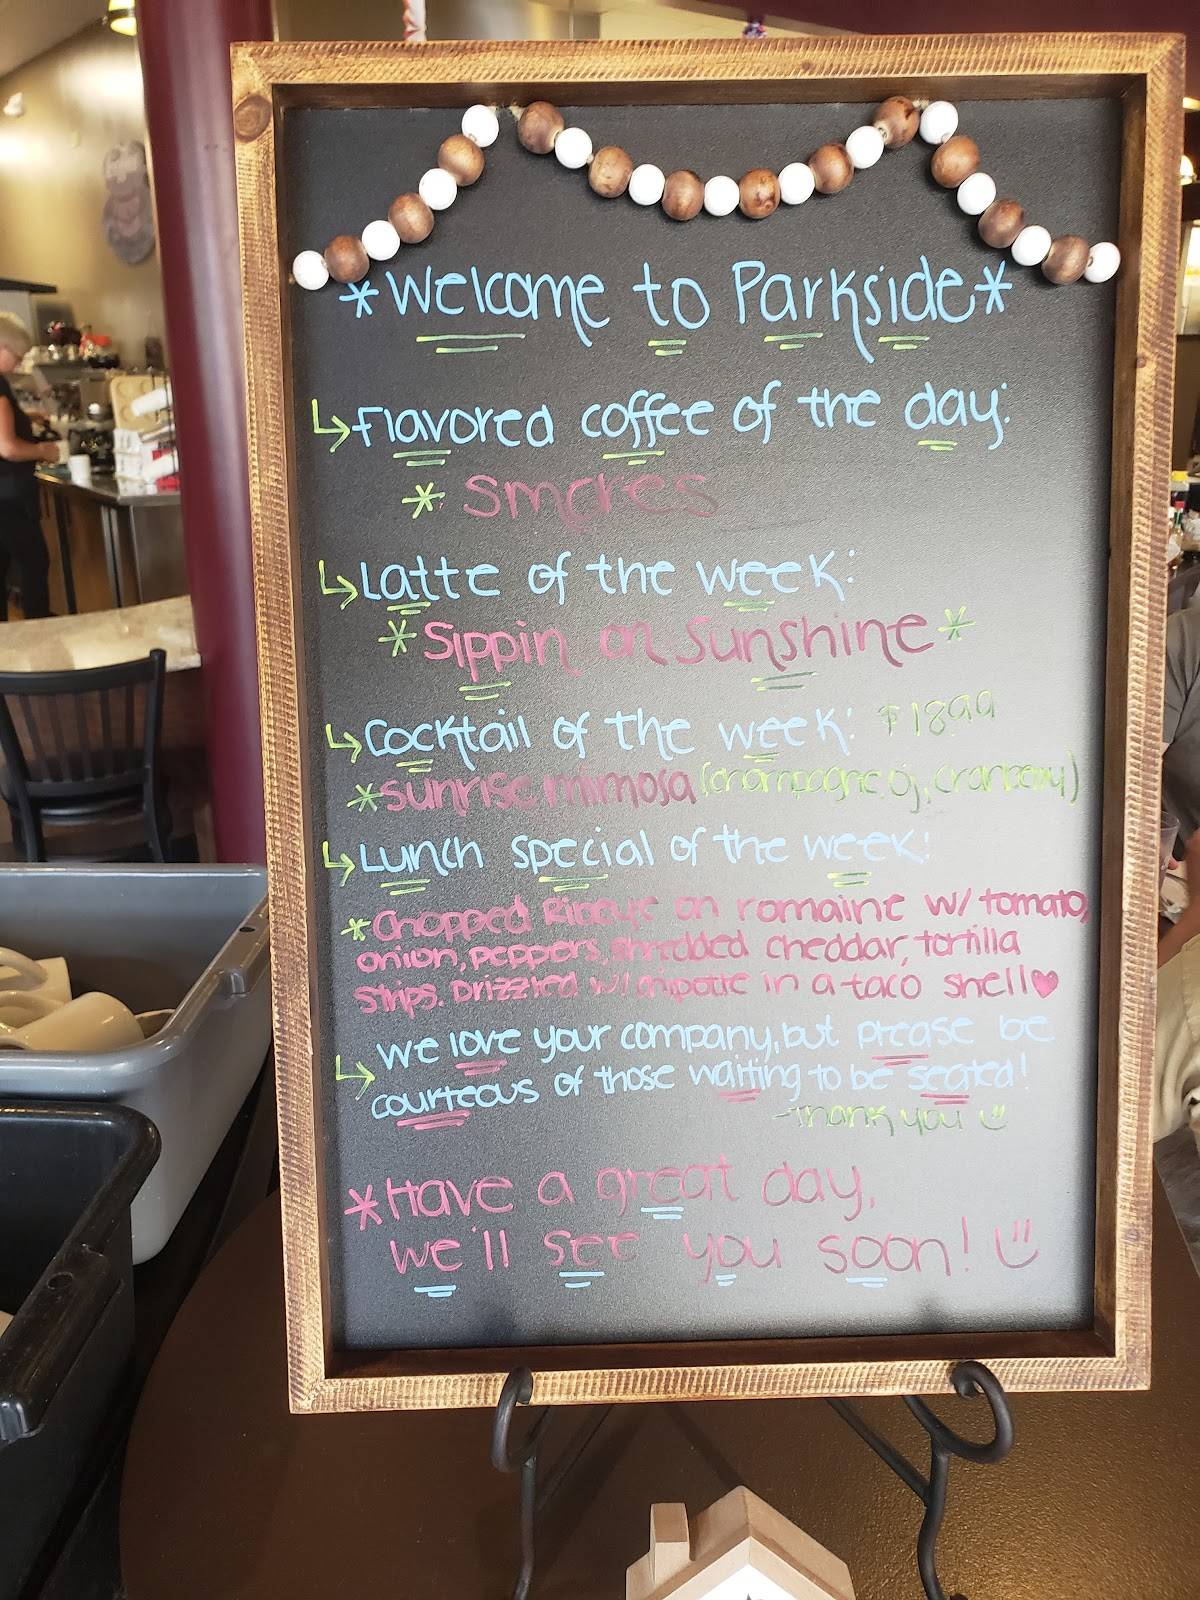 *Welcome to Parkside*
Flavored coffee of the day:
* Smores
Latte of the week:
*Sippin on Sunshine*
Cocktail of the week: $18.99
*sunrise mimosa (champagne, oj, cranberry)
Lunch special of the week:
*Chopped Ribeye on romaine w/ tomato,
onion, peppers, shredded cheddar, tortilla
strips. Drizzled w/ chipotle in a taco shell♥
we love your company, but please be
courteous of those waiting to be seated!
-Thank you
*Have a great day,
we'll see you soon!